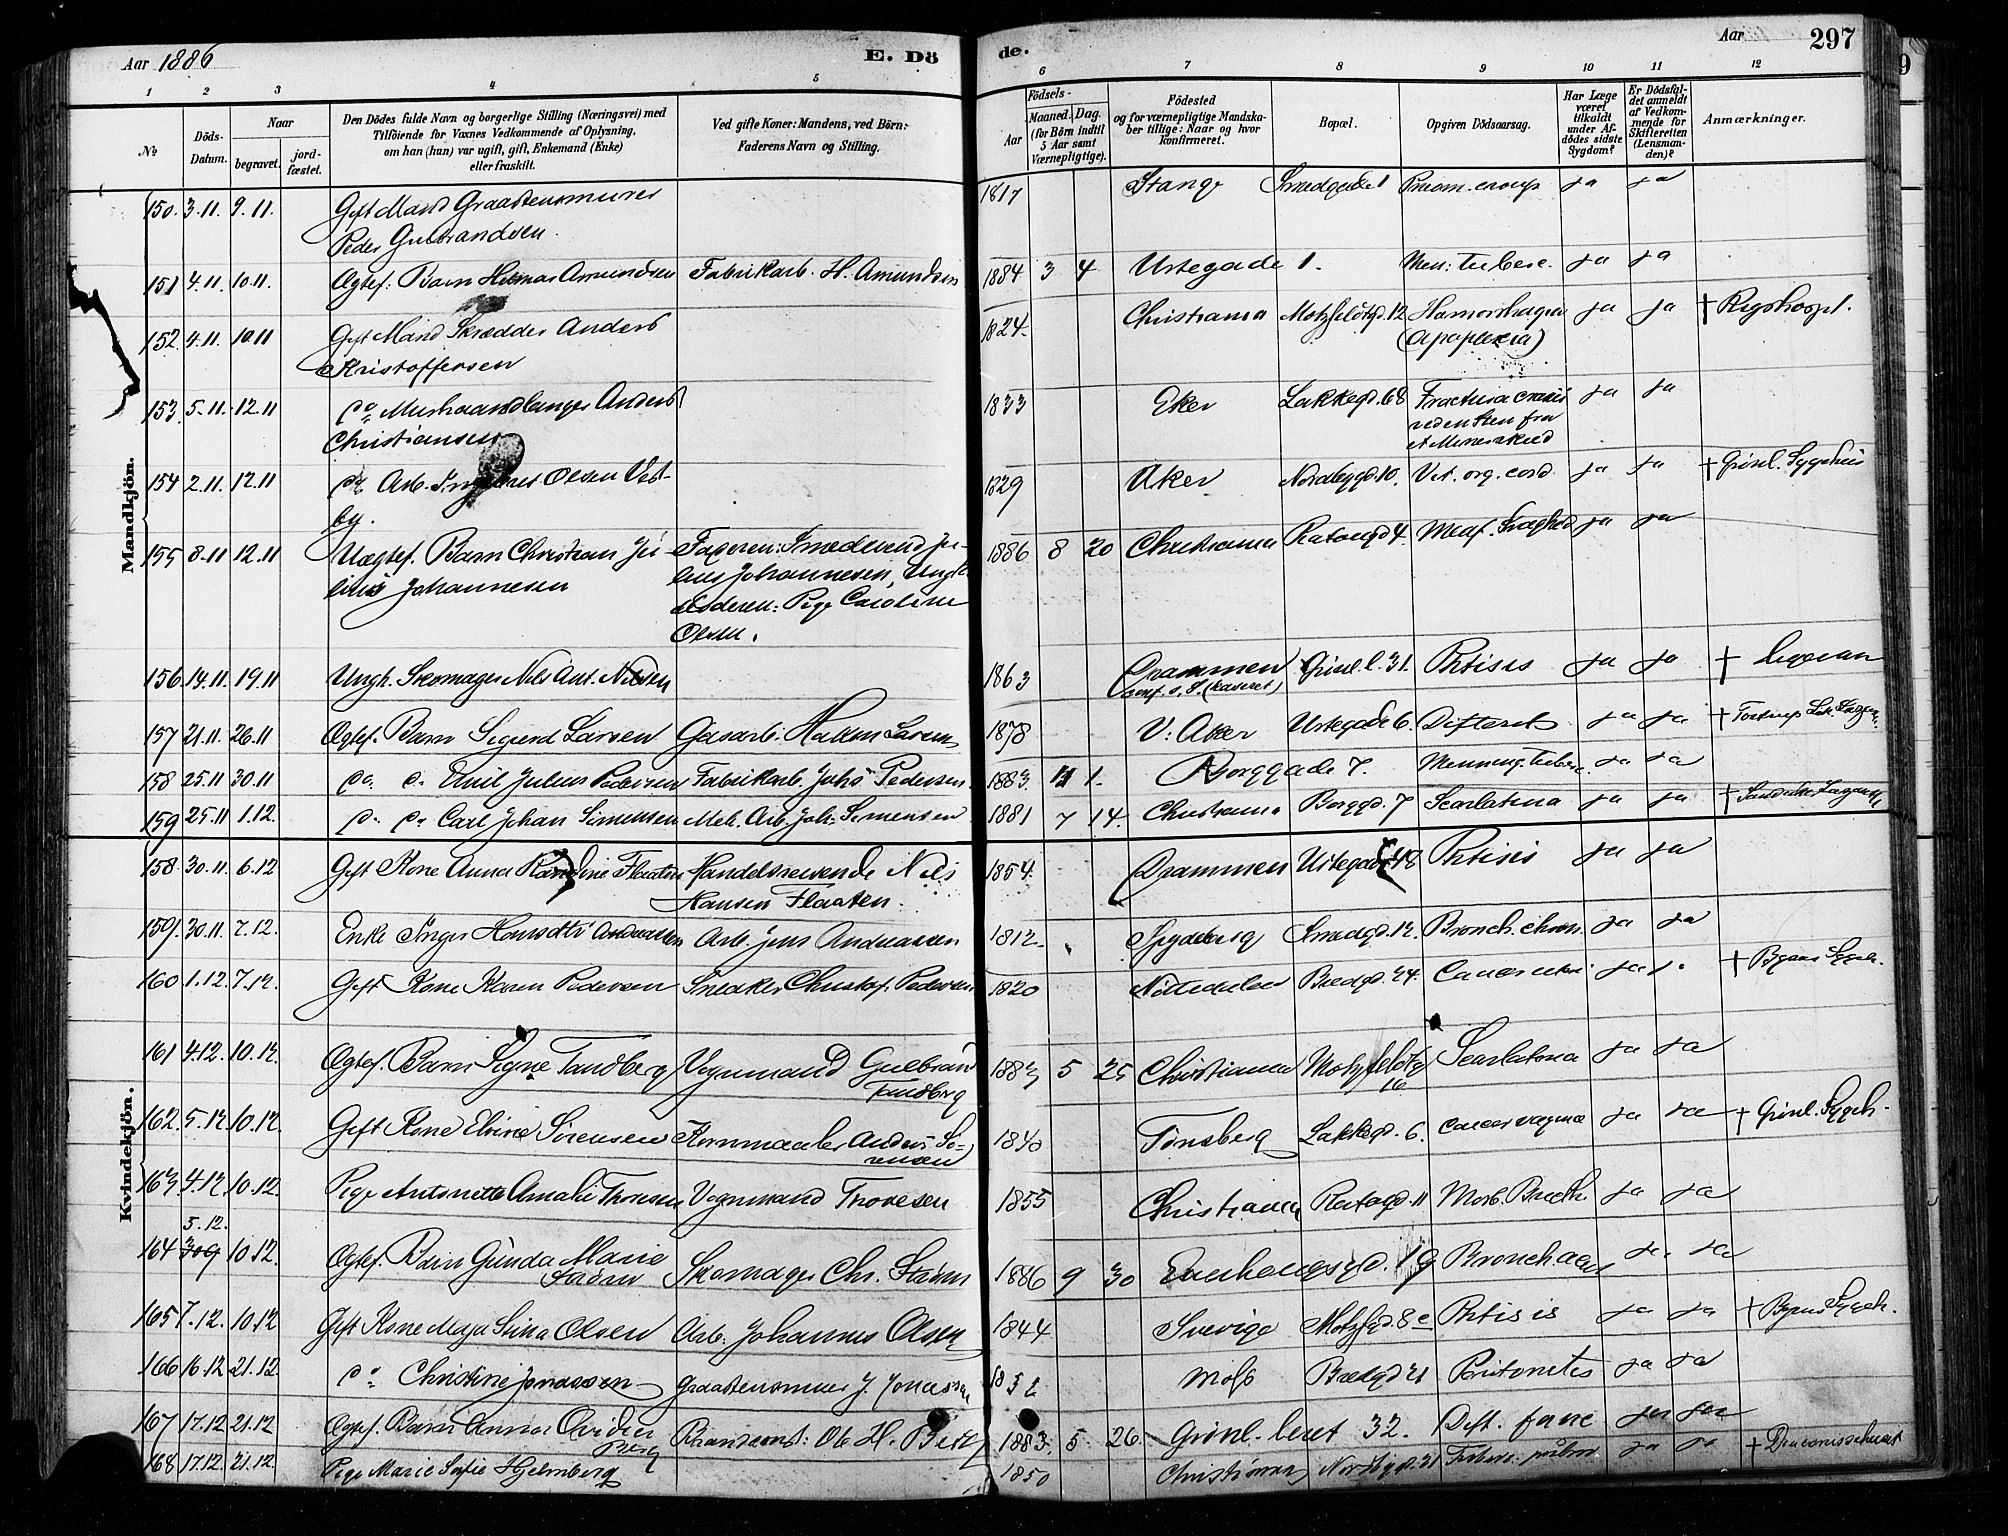 Aar 1886
E. Dö
de.
Aar
297
1 2 3 4 5 6 7 8 9 10 11 12
No
Döds-Datum.
Naar
begravet.
jord-fæstet.
Den Dödes fulde Navn og borgerlige Stilling (Næringsvei) med
Tilföiende for Voxnes Vedkommende af Oplysning,
om han (hun) var ugift, gift, Enkemand (Enke)
eller fraskilt.
Ved gifte Koner: Mandens, ved Börn:
Faderens Navn og Stilling.
Födsels-
Aar
Maaned.
Dag.
(for Börn indtil
5 Aar samt
Værnepligtige).
Födested
og for værnepligtige Mandska-
ber tillige: Naar og hvor
konfirmeret.
Bopæl.
Opgiven Dödsaarsag.
Har Læge
været
tilkaldt
under Af-
dödes sidste
Sygdom?
Er Dödsfal-
det anmeldt
af Vedkom-
mende for
Skifteretten
(Lensman-
den)?
Anmærkninger.
Mandkjön.
150. 3.11. 9.11. Gift Mand Graastensmurer 1817 Stange Smedgade 1 Pneum. croup. ja ja
Peder Gulbrandsen
151 4.11. 10.11. Ægtef. Barn Hilmar Amundsen Fabrikarb. H. Amundsen 1884 3 4 Urtegade 1. Men. Tuberc. ja ja
152. 4.11. 10.11 Gift Mand Skrædder Anders 1824. Christiania Motzfeldtgd. 12 Hæmorrhagia ja ja † Rigshospt.
Kristoffersen (Apoplexia)
153. 5.11. 12.11 Do Murhaandlanger Anders 1833 Eker Lakkegd. 68 Fractura cranii ja ja
Christiansen ved en Sten fra
154 2.11. 12.11 Do Arb. Olsen Vest- 1829 Aker Nordbygd. 10. Vit. org. cord. ja ja † Grønl. Sygehus
by.
155 8.11 12.11 Uægtef. Barn Christian Ju- Faderen: Smedsvend Ju- 1886 8 20 Christiania Rubinagd 4. Medf. Svaghed ja ja
lius Johannesen lius Johannesen, Ungk.
Moderen: Pige Caroline
Olsen.
156 14.11. 19.11 Ungk. Skomager Nils Ant. Nilsen 1863 Drammen Grønl. l. 31. Phtisis ja ja †
157 21.11. 26.11 Ægtef. Barn Sigurd Larsen Gasarb. Hakon Larsen 1878 V. Aker Urtegade 6. Difterit ja ja †
158 25.11 30.11 Do Do Emil Julius Pedersen Fabrikarb. Johs Pedersen. 1883. 11 1. Borggade 7. Menning. Tuberc. ja ja
159 25.11 1.12. Do Do Carl Johan Simensen Mek. Arb. Joh. Simensen 1881 7 14. Christiania Borggd. 7 Scarlatina ja ja †
Kvindekjön.
158. 30.11. 6.12 Gift Kone Anna Flaaten Handelsreisende Nils 1854. Drammen Urtegade 48 Phtisis ja ja
Hansen Flaaten.
159. 30.11. 7.12. Enke Inger Hansdtr Andreassen Arb. Jens Andreassen 1812. Spydeberg Smedgd. 12. Bronch. chron. ja ja
160 1.12. 7.12. Gift Kone Karen Pedersen Snekker Christof. Pedersen 1820 Nittedalen Bredgd. 24. Cancer uteri ja † Byens Sygeh.
161 4.12. 10.12. Ægtef. Barn Signe Tandberg Vognmand Gulbrand 1883 5 25 Christiania Motzfeldtgd. Scarlatina ja ja
Tandberg 16
162. 5.12. 10.12. Gift Kone Elvine Sørensen Kornmaaler Anders Sø- 1840 Tønsberg Lakkegd. 6. Cancer vagina ja ja † Grønl. Sygeh.
rensen
163 4.12 10.12. Pige Antonette Amalie Thoresen Vognmand Thoresen 1855 Christiania 11 Morb. Brigthi ja ja
5.12.
164 10.12. Ægtef. Barn Gunda Marie 1886 9 30 Enerhaugsgd. 19 Bronch. ja ja
Skomager Chr.
165 7.12. 10.12 Gift Kone Maja Stina Olsen Arb. Johannes Olsen 1844 Sverige Motzfgd. 8 c Phtisis ja ja † Byens Sygeh.
166 16.12 21.12 Do Christine Jonassen Graastensmurer J. Jonassen 185 Moss Bredgd 21 Peritonitis ja ja
167 17.12 21.12 Ægtef. Barn Anna Ovidia Brandconst. Ole H. Berg 1883. 5 26. Grønl. leret 32. Dift. fauc ja ja
Berg
168 17.12. 21.12. Pige Marie Sofie Hjelmberg 1850 Christiania Nordbygd. 21 Tuberc. pulm. ja ja † Diaconissehuset